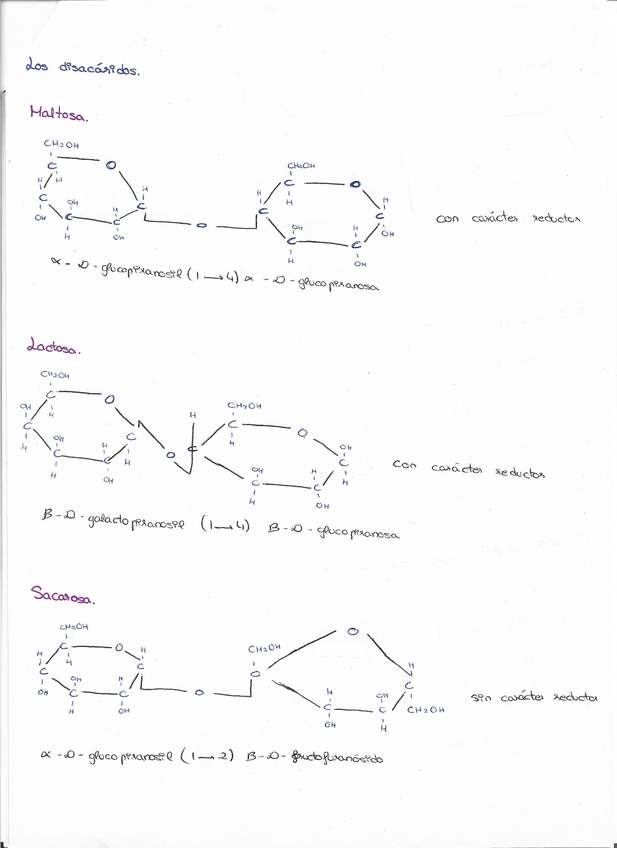 Los disacáridos.
Maltosa.
CH2OH
O
C
H
H
C
OH
OH
C
H
H
C
OH
H
C
O
CH2OH
C
H
O
H
C
H
C
OH
H
C
OH
OH
C
H
con carácter reductor
α - D - glucopiranosil (1 → 4) α - D - glucopiranosa
Lactosa.
CH2OH
C
H
O
OH
C
H
OH
C
H
H
C
OH
C
H
O
H
C
CH2OH
C
H
O
OH
C
H
H
C
OH
OH
C
H
con carácter reductor
B - D - galactopiranosil (1 → 4) B - D - glucopiranosa
Sacarosa.
CH2OH
C
H
O
H
C
H
C
OH
OH
C
H
H
C
OH
O
CH2OH
C
O
H
C
CH2OH
H
C
OH
OH
C
H
sin carácter reductor
α - D - glucopiranosil (1 → 2) B - D - fructofuranósido